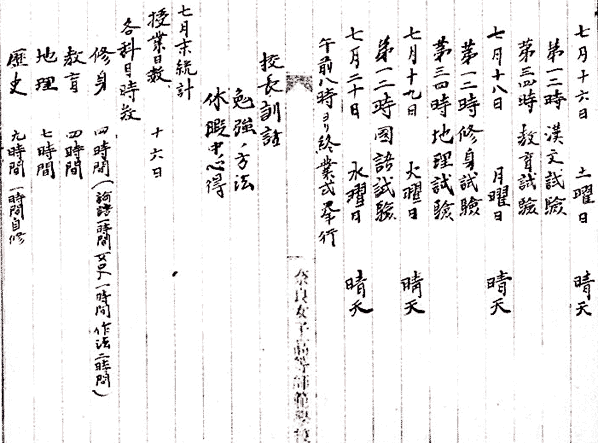 七月十六日 土曜日 晴天
第一二時 漢文試験
第三四時 教育試験
七月十八日 月曜日 晴天
第一二時 修身試験
第三四時 地理試験
七月十九日 火曜日 晴天
第一二時 國語試験
七月二十日 水曜日 晴天
午前八時ヨリ終業式擧行
奈良女子高等師範學校
校長訓話
勉強ノ方法
休暇中心得
七月末統計
授業日数 十六日
各科目時数
修身 四時間(論語一時間 女史一時間 作法二時間)
教育 四時間
地理 七時間
歴史 九時間 一時間自修